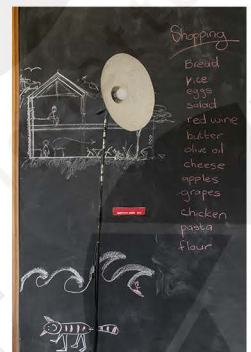 Shopping
Bread
rice
eggs
salad
red wine
butter
olive oil
cheese
apples
grapes
chicken
pasta
flour